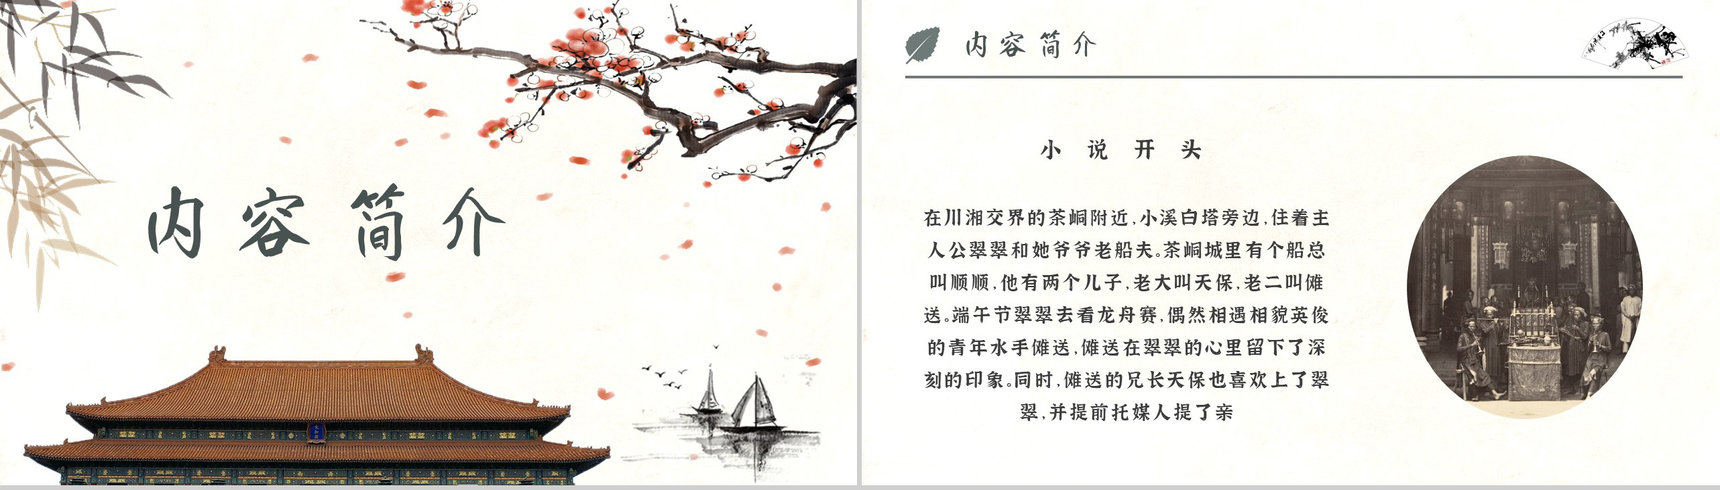 内容简介
内容简介
小说开头
在川湘交界的茶峒附近,小溪白塔旁边,住着主
人公翠翠和她爷爷老船夫。茶峒城里有个船总
叫顺顺,他有两个儿子,老大叫天保,老二叫傩
送。端午节翠翠去看龙舟赛,偶然相遇相貌英俊
的青年水手傩送,傩送在翠翠的心里留下了深
刻的印象。同时,傩送的兄长天保也喜欢上了翠
翠,并提前托媒人提了亲